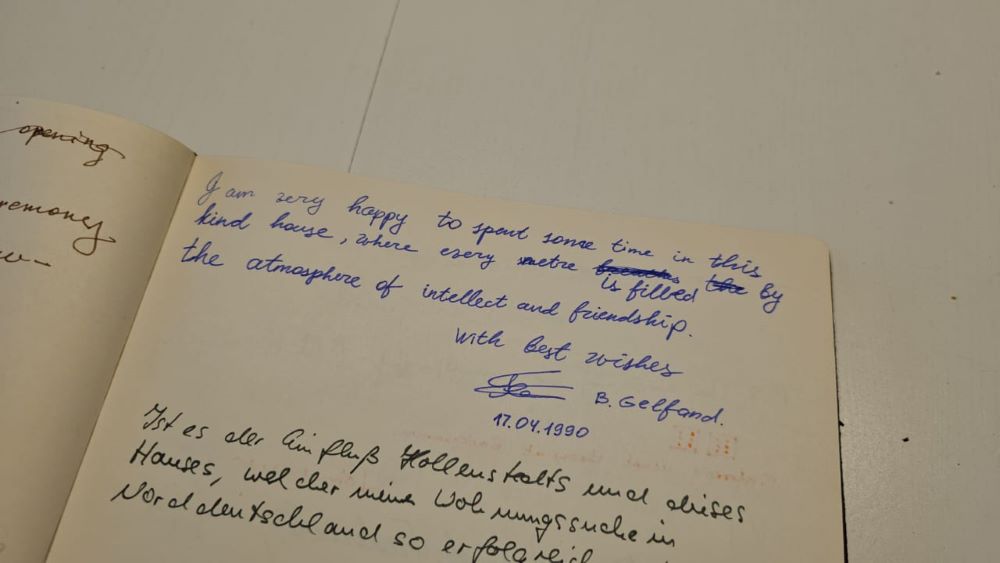 opening
remoney
I am very happy to spent some time in this
kind house, where every metre is filled by
the atmosphere of intellect and friendship.
With best wishes
B. Gelfand.
17.04.1990
Ist es der Einfluß Hollenstedts und dieses
Hauses, welcher meine Wohnungssuche in
Norddeutschland so erfolgreich